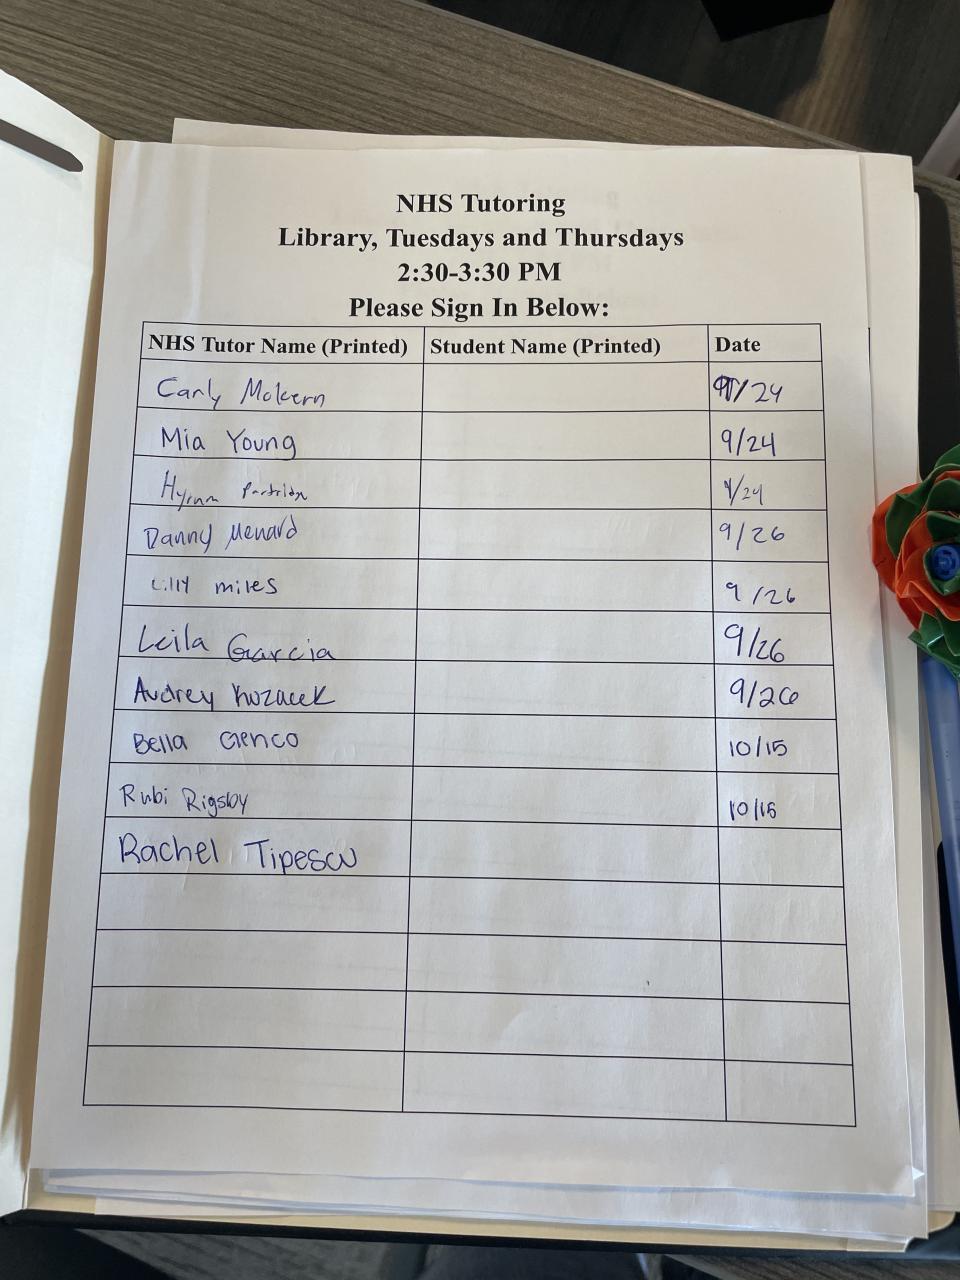 NHS Tutoring
Library, Tuesdays and Thursdays
2:30-3:30 PM
Please Sign In Below:
NHS Tutor Name (Printed) Student Name (Printed) Date
Carly McKern 9/24
Mia Young 9/24
9/24
Danny Menard 9/26
Lilly miles 9/26
Leila Garcia 9/26
Audrey Kozacek 9/26
Bella Genco 10/15
Rubi Rigsby 10/15
Rachel Tipescu